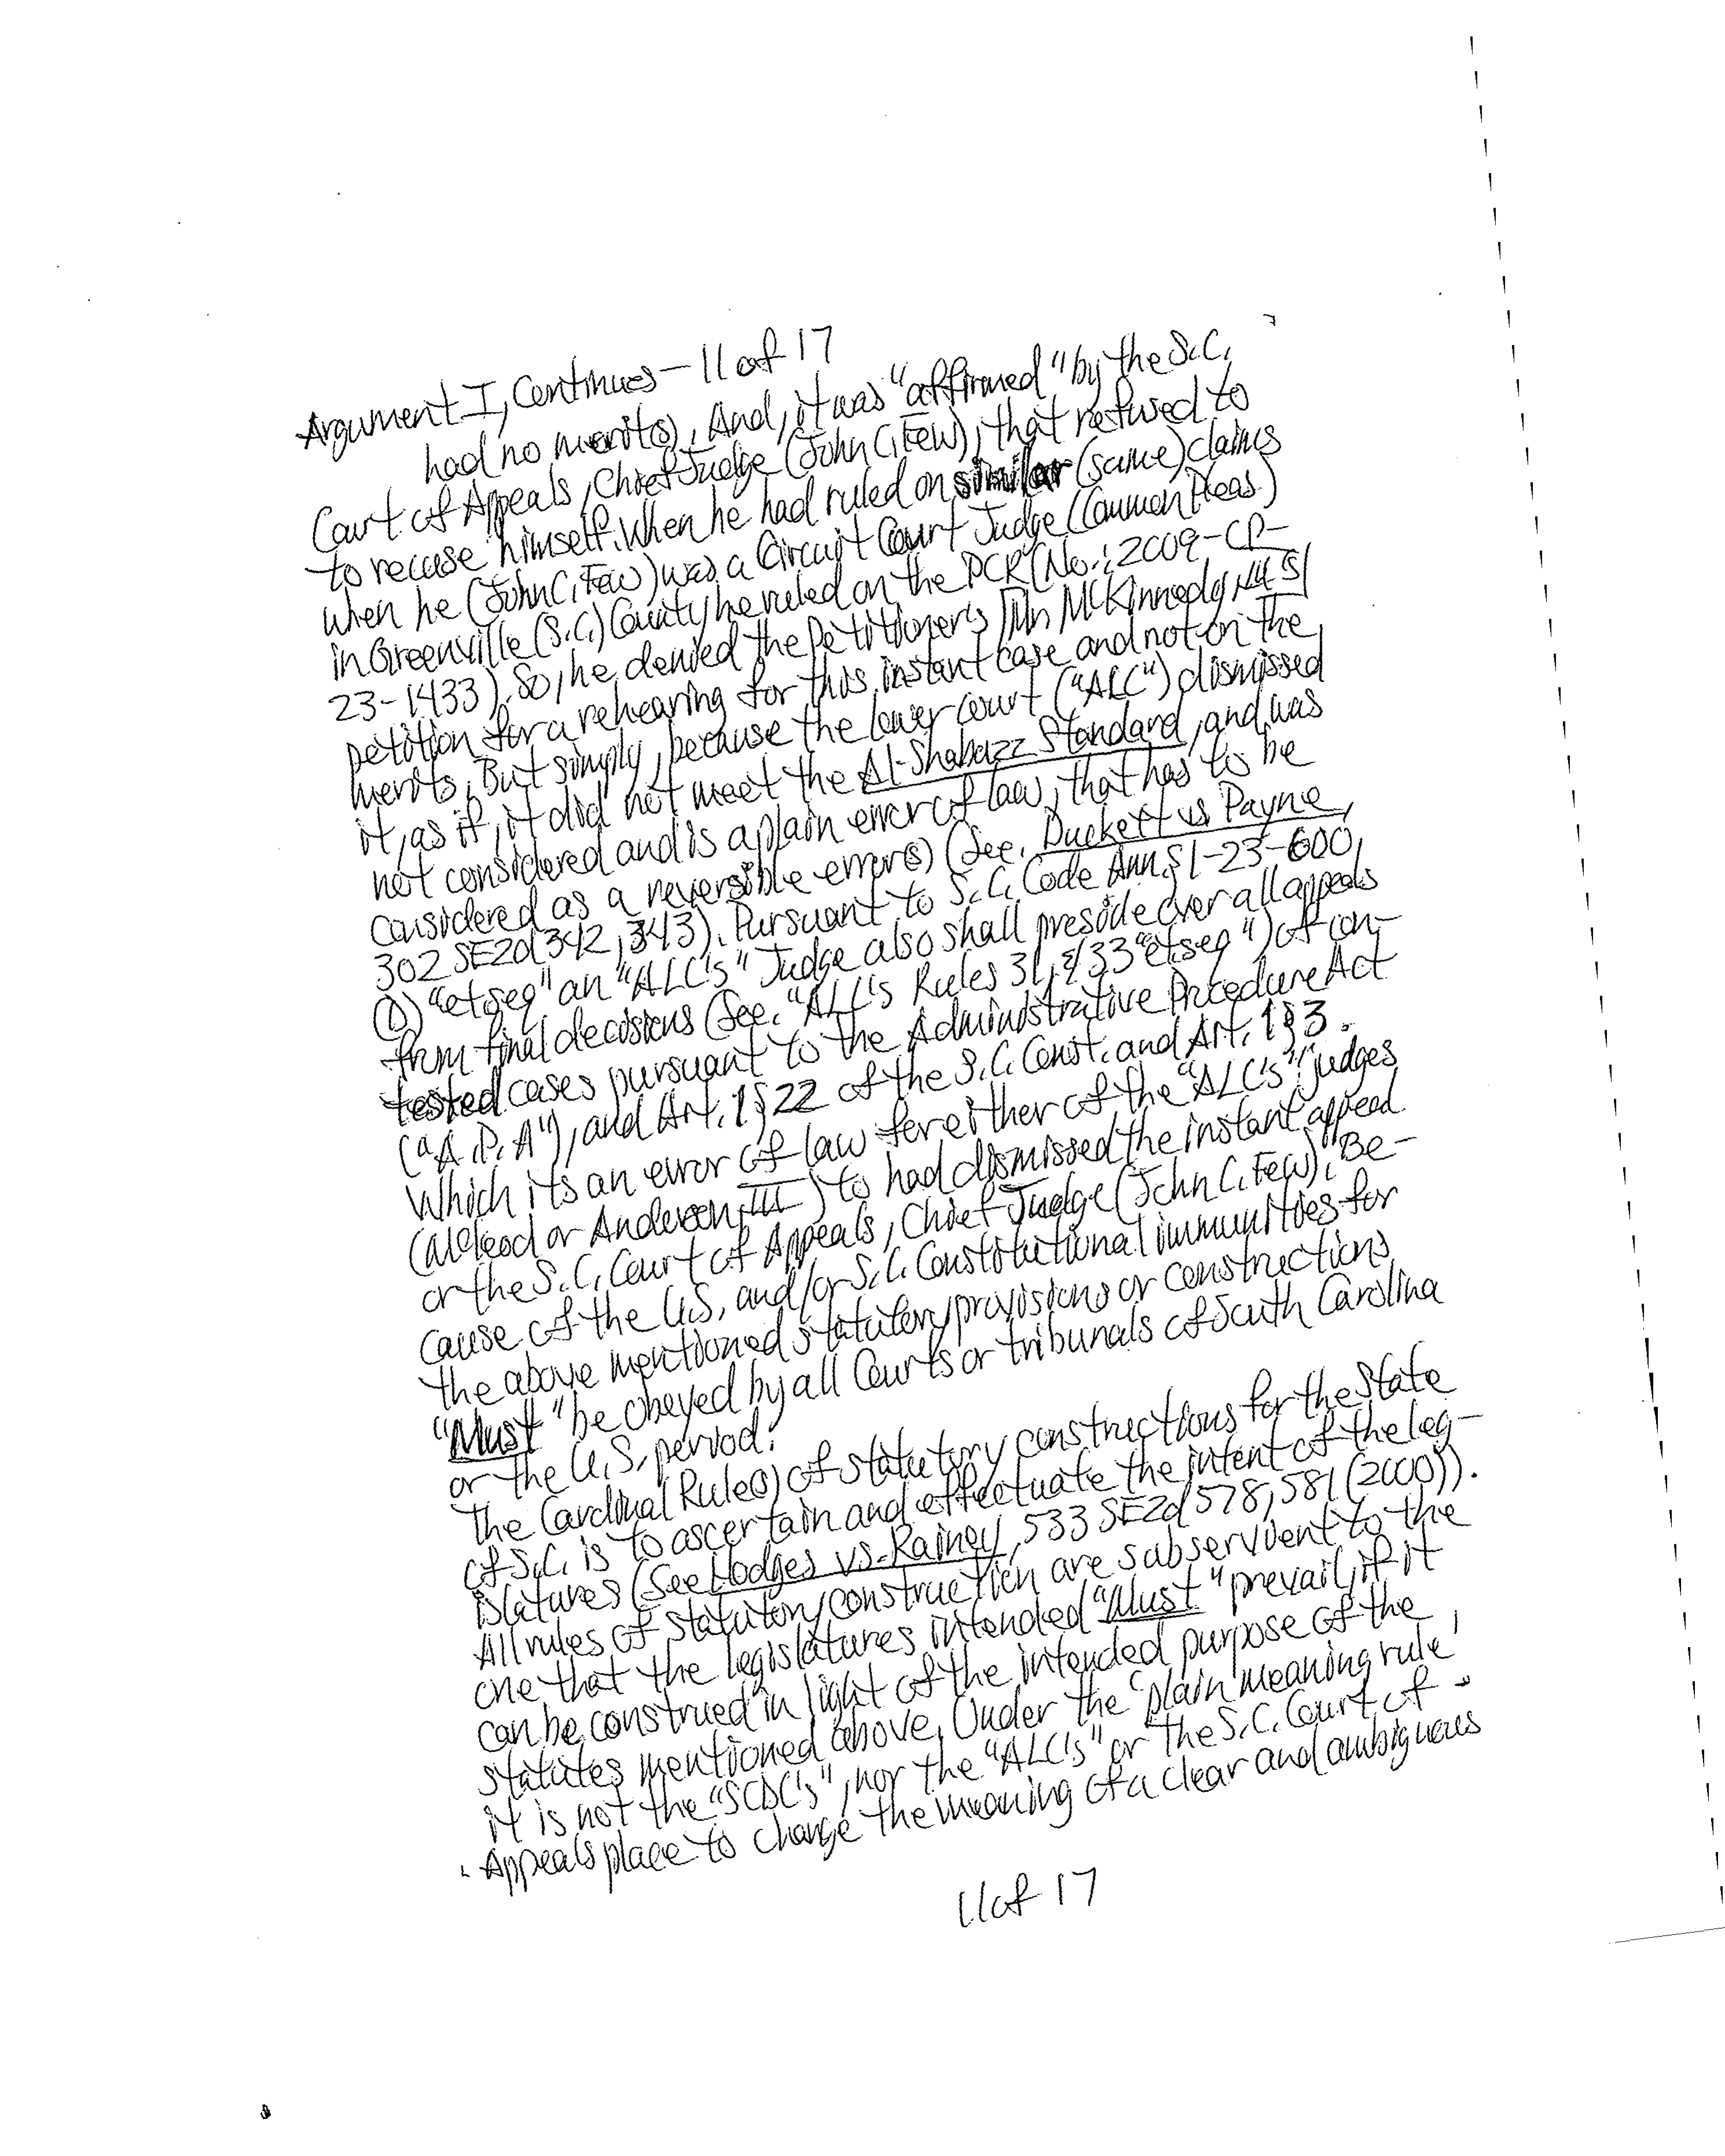 Argument I, Continues - 11 of 17
had no merit(s). And, it was "affirmed" by the S.C.
Court of Appeals, Chief Judge (John C. Few), that refused to
to recuse himself. When he had ruled on similar (same) claims
when he (John C. Few) was a Circuit Court Judge (Common Pleas)
in Greenville (S.C.) County he ruled on the PCR (No.: 2009-CP-
23-1433). So, he denied the Petitioner's Mr. McKinnedy, III's
petition for a rehearing for this instant case and not on the
merits. But simply, because the lower court ("ALC") dismissed
it, as if, it did not meet the Al-Shabazz Standard, and was
not considered and is a plain error of law, that has to be
considered as a reversible error(s) (See, Duckett vs Payne,
302 SE2d 342, 343). Pursuant to S.C. Code Ann. § 1-23-600,
(D) "et seq" an "ALC's" Judge also shall preside over all appeals
from final decisions (See, "ALC's Rules 31, & 33 "et seq") of con-
tested cases pursuant to the Administrative Procedure Act
("A.P.A"), and Art. 1 § 22 of the S.C. Const. and Art. 1 § 3.
Which its an error of law for either of the "ALC's" judges
(McLeod or Anderson, III) to had dismissed the instant appeal
or the S.C. Court of Appeals, Chief Judge (John C. Few). Be-
cause of the U.S, and/or S.C. Constitutional immunities for
the above mentioned statutory provisions or constructions
"Must" be obeyed by all Courts or tribunals of South Carolina
or the U.S. period.
The Cardinal Rule(s) of statutory constructions for the State
of S.C. is to ascertain and effectuate the intent of the leg-
islatures (See Hodges vs. Rainey, 533 SE2d 578, 581 (2000)).
All rules of statutory construction are subservient to the
one that the legislatures intended "Must" prevail, if it
can be construed in light of the intended purpose of the
statutes mentioned above. Under the "plain meaning rule"
it is not the "SCDC's", nor the "ALC's" or the S.C. Court of
Appeals place to change the meaning of a clear and ambiguous
11 of 17